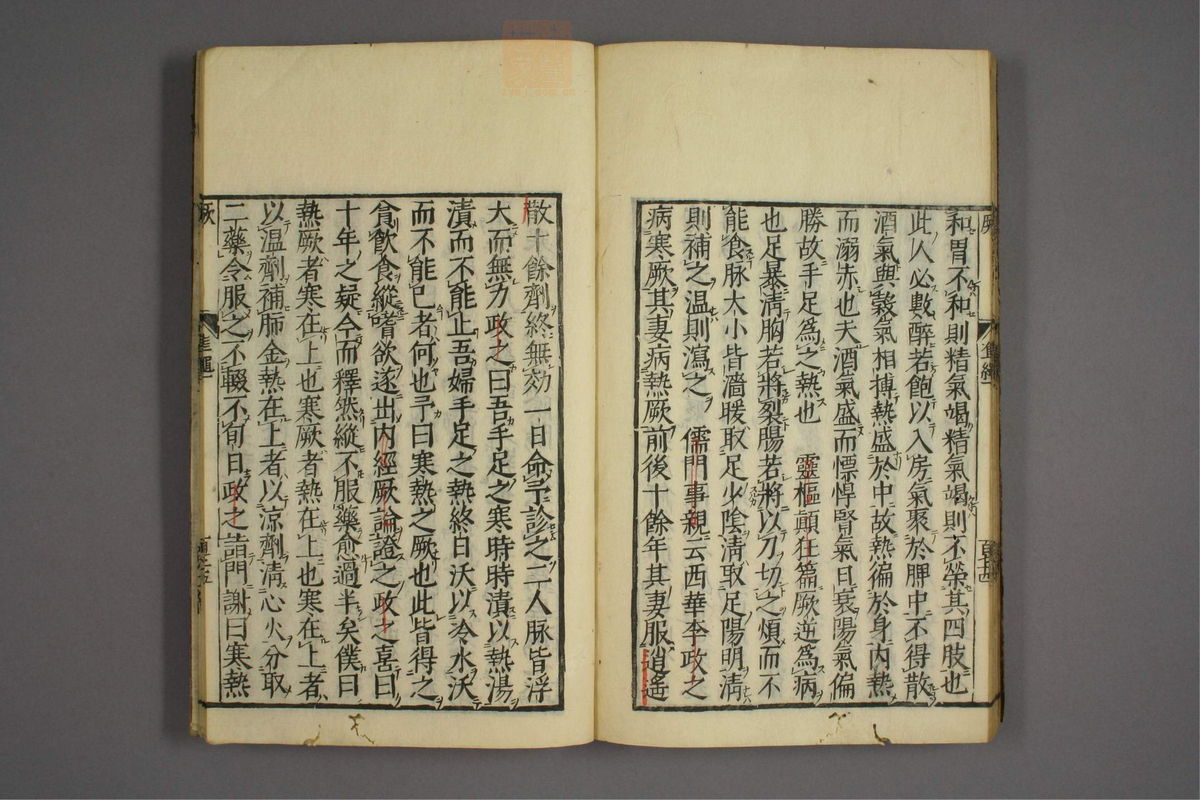 和胃不和則精氣竭精氣竭則不榮其四肢也
此人必數醉若飽以入房氣聚於脾中不得散
酒氣與穀氣相搏熱盛於中故熱徧於身内熱
而溺赤也夫酒氣盛而慓悍腎氣日衰陽氣偏
勝故手足爲之熱也 靈樞顛狂篇厥逆爲病
也足暴淸胸若將裂腸若將以刀切之煩而不
能食脉大小皆濇暖取足少陰淸取足陽明淸
則補之温則瀉之 儒門事親云西華李政之
病寒厥其妻病熱厥前後十餘年其妻服逍遙
散十餘劑終無効一日命予診之二人脉皆浮
大而無力政之曰吾手足之寒時時漬以熱湯
漬而不能止吾婦手足之熱終日沃以冷水沃
而不能已者何也予曰寒熱之厥也此皆得之
貪飲食縱嗜欲遂出内經厥論證之政之喜曰
十年之疑今而釋然縱不服藥愈過半矣僕曰
熱厥者寒在上也寒厥者熱在上也寒在上者
以温劑補肺金熱在上者以凉劑淸心火分取
二藥令服之不輟不旬日政之詣門謝曰寒熱
厥